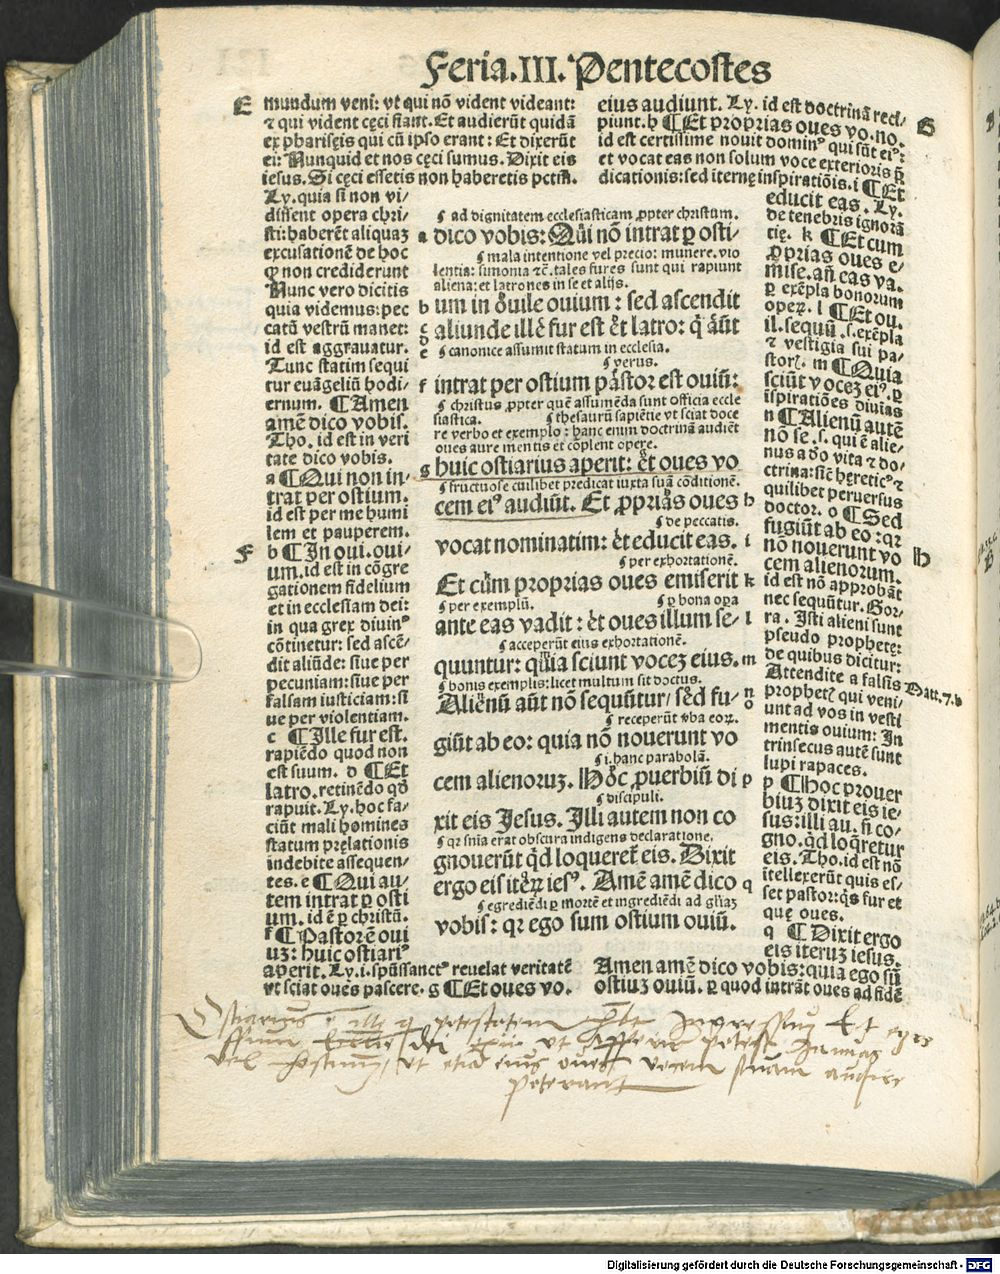 Feria.III. Pentecostes
E
mundum veni: vt qui nõ vident videant:
⁊ qui vident cęci fiant. Et audierũt quidã
ex pharisęis qui cũ ipso erant: Et dixerũt
ei: Nunquid et nos cęci sumus. Dixit eis
iesus. Si cęci essetis non haberetis pctm̃.
Ly. quia si non vi/
dissent opera chri/
sti: haberẽt aliquaꝫ
excusationẽ de hoc
ꝙ non crediderunt
Nunc vero dicitis
quia videmus: pec
catũ vestrũ manet:
id est aggrauatur.
Tunc statim sequi
tur euãgeliũ hodi/
ernum. ¶Amen
amẽ dico vobis.
Tho. id est in veri
tate dico vobis.
a ¶Qui non in/
trat per ostium.
id est per me humi
lem et pauperem.
F
b ¶In oui. oui/
um. id est in cõgre
gationem fidelium
et in ecclesiam dei:
in qua grex diuinꝰ
cõtinetur: sed ascẽ/
dit aliũde: siue per
pecuniam: siue per
falsam iusticiam: si
ue per violentiam.
c ¶Ille fur est.
rapiẽdo quod non
est suum. d ¶Et
latro. retinẽdo qđ
rapuit. Ly. hoc fa/
ciũt mali homines
statum pręlationis
indebite assequen/
tes. e ¶Qui au/
tem intrat ꝑ osti
um. id ẽ ꝑ christũ.
f ¶Pastor ẽ oui
uꝫ: huic ostiariꝰ
aperit. Ly. i. spũssanctꝰ reuelat veritatẽ
vt sciat oues pascere. g ¶Et oues vo.
ꝯ ad dignitatem ecclesiasticam ꝓpter christum.
a dico vobis: Qui nõ intrat ꝑ osti/
ꝯ mala intentione vel precio: munere. vio
lentia: simonia ⁊c̃. tales fures sunt qui rapiunt
aliena: et latrones in se et alijs.
b um in ouile ouium: sed ascendit
c d aliunde ille fur est et latro: q̃ aũt
e ꝯ canonice assumit statum in ecclesia.
ꝯ verus.
f intrat per ostium pastor est ouiũ:
ꝯ christus ꝓpter quẽ assumẽda sunt officia eccle
siastica. ꝯ thesaurũ sapiẽtie vt sciat doce
re verbo et exemplo: hanc enim doctrinã audiẽt
oues aure mentis et cõplent opere.
g huic ostiarius aperit: et oues vo
ꝯ fructuose cuilibet predicat iuxta suã cõditionẽ.
cem eiꝰ audiũt. Et ꝓprias oues h
ꝯ de peccatis.
vocat nominatim: et educit eas. i
ꝯ per exhortationẽ.
Et cum proprias oues emiserit k
ꝯ per exemplũ. ꝯ ꝑ bona oꝑa
ante eas vadit: et oues illum se/ l
ꝯ acceperũt eius exhortationẽ.
quuntur: quia sciunt voceꝫ eius. m
ꝯ bonis exemplis: licet multum sit doctus.
Alienũ aũt nõ sequũtur/ sed fu/ n o
ꝯ receperũt v̓ba eoꝝ.
giũt ab eo: quia nõ nouerunt vo
ꝯ i. hanc parabolã.
cem alienoruꝫ. Hoc ꝓuerbiũ di p
ꝯ discipuli.
xit eis Jesus. Illi autem non co
ꝯ qꝛ sñia erat obscura indigens declaratione.
gnouerũt qd̃ loqueret̃ eis. Dixit
ergo eis iteꝝ iesꝰ. Amẽ amẽ dico q
ꝯ egrediẽdi ꝑ mortẽ et ingrediẽdi ad gl̃iaꝫ
vobis: qꝛ ego sum ostium ouiũ.
eius audiunt. Ly. id est doctrinã reci/
G
piunt. h ¶Et proprias oues vo. no.
id est certissime nouit dominꝰ qui sũt eiꝰ:
et vocat eas non solum voce exterioris p̃
dicationis: sed iternę inspiratiõis. i ¶Et
educit eas. Ly.
de tenebris ignorã
tię. k ¶Et cum
ꝓprias oues e/
mise. añ eas va.
ꝑ exẽpla bonorum
opeꝝ. l ¶Et ou.
il. sequũ. s. exẽpla
⁊ vestigia sui pa/
storꝭ. m ¶Quia
sciũt voceꝫ eiꝰ. ꝑ
ispiratiões diuĩas
n ¶Alienũ autẽ
nõ se. s. qui ẽ alie/
nus a deo vita ⁊ do/
ctrina: sic̃ hęreticꝰ ⁊
quilibet peruersus
doctor. o ¶Sed
fugiũt ab eo: qꝛ
nõ nouerunt vo
H
cem alienorum.
id est nõ approbãt
nec sequũtur. Gor/
ra. Isti alieni sunt
pseudo prophetę:
de quibus dicitur:
Attendite a falsis
Matt. 7. b
prophetꝭ qui veni/
unt ad vos in vesti
mentis ouium: In
trinsecus autẽ sunt
lupi rapaces.
p ¶Hoc prouer
biuꝫ dixit eis ie/
sus: illi au. ñ co/
gno. qd̃ loq̃retur
eis. Tho. id est nõ
ĩtellexerũt quis es/
set pastor: q̃s fur et
quę oues.
q ¶Dixit ergo
eis iteruꝫ iesus.
Amen amẽ dico vobis: quia ego sũ
ostiuꝫ ouiũ. ꝑ quod intrãt oues ad fidẽ
Ostiarius ille potestatem ingressum Et
vel hostium, ut etiã eius oues vocem suam audire
poterant
Digitalisierung gefördert durch die Deutsche Forschungsgemeinschaft - DFG